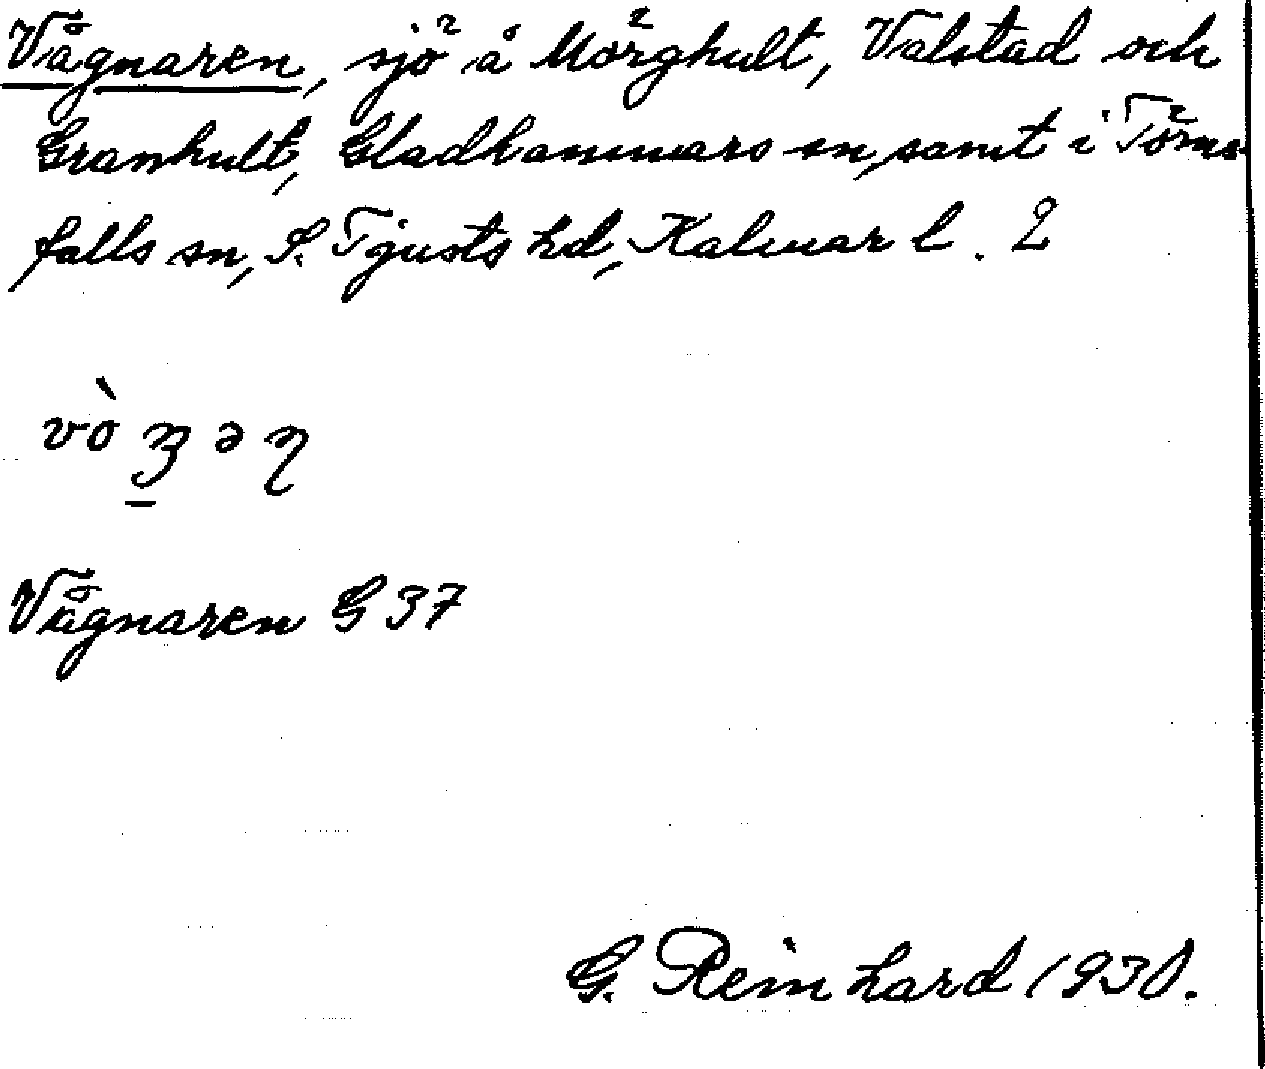 Vågnaren, sjö å Mörghult, Valstad och
Granhult, Gladhammars sn, samt i Törns-
falls sn, S. Tjusts hd, Kalmar l. 2
Vågnaren G 37
G. Reinhard 1930.